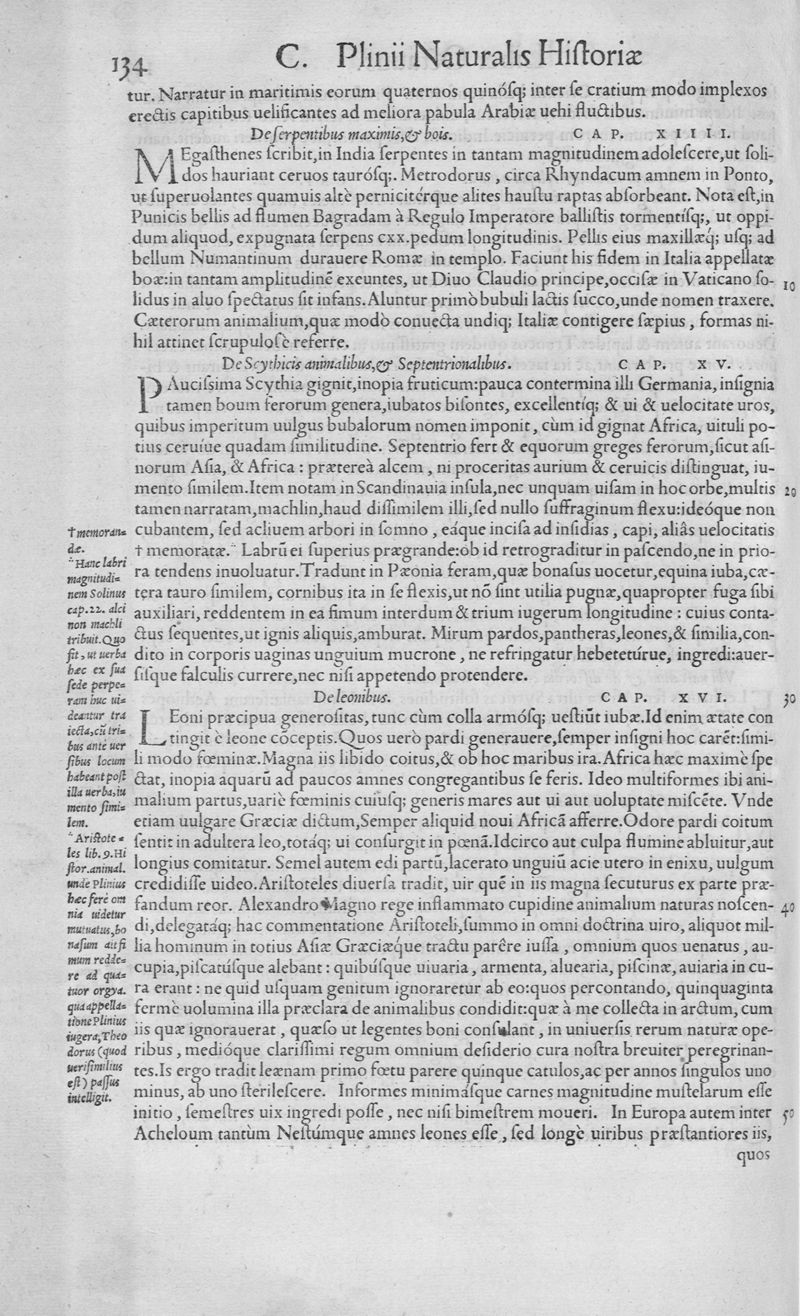 134
C. Plinii Naturalis Hiſtoriæ
tur. Narratur in maritimis eorum quaternos quinóſq; inter ſe cratium modo implexos
erectis capitibus uelificantes ad meliora pabula Arabiæ uehi fluctibus.
De ſerpentibus maximis,& bois. CAP. XIIII.
MEgaſthenes ſcribit,in India ſerpentes in tantam magnitudinem adoleſcere,ut ſoli-
dos hauriant ceruos tauróſq;. Metrodorus , circa Rhyndacum amnem in Ponto,
ut ſuperuolantes quamuis altè pernicitérque alites hauſtu raptas abſorbeant. Nota eſt,in
Punicis bellis ad flumen Bagradam à Regulo Imperatore balliſtis tormentíſq;, ut oppi-
dum aliquod, expugnata ſerpens cxx.pedum longitudinis. Pellis eius maxillæq́; uſq; ad
bellum Numantinum durauere Romæ in templo. Faciunt his fidem in Italia appellatæ
boæ:in tantam amplitudinẽ exeuntes, ut Diuo Claudio principe,occiſæ in Vaticano ſo-
10
lidus in aluo ſpectatus ſit infans. Aluntur primò bubuli lactis ſucco,unde nomen traxere.
Cæterorum animalium,quæ modò conuecta undiq; Italiæ contigere ſæpius , formas ni-
hil attinet ſcrupuloſè referre.
De Scythicis animalibus,& Septentrionalibus. CAP. XV.
PAuciſsima Scythia gignit,inopia fruticum:pauca contermina illi Germania, inſignia
tamen boum ferorum genera,iubatos biſontes, excellentíq; & ui & uelocitate uros,
quibus imperitum uulgus bubalorum nomen imponit , cùm id gignat Africa, uituli po-
tius ceruíue quadam ſimilitudine. Septentrio fert & equorum greges ferorum,ſicut aſi-
norum Aſia, & Africa : præterea alcem , ni proceritas aurium & ceruicis diſtinguat, iu-
mento ſimilem.Item notam in Scandinauia inſula,nec unquam uiſam in hoc orbe,multis
20
tamen narratam,machlin,haud diſſimilem illi,ſed nullo ſuffraginum flexu:ideóque non
cubantem, ſed acliuem arbori in ſomno , eáque inciſa ad inſidias , capi, aliâs uelocitatis
† memoratæ.¨ Labrũ ei ſuperius prægrande:ob id retrograditur in paſcendo,ne in prio-
ra tendens inuoluatur.Tradunt in Pæonia feram,quæ bonaſus uocetur,equina iuba,cæ-
tera tauro ſimilem, cornibus ita in ſe flexis,ut nõ ſint utilia pugnæ,quapropter fuga ſibi
auxiliari, reddentem in ea fimum interdum & trium iugerum longitudine : cuius conta-
ctus ſequentes,ut ignis aliquis,amburat. Mirum pardos,pantheras,leones,& ſimilia,con-
dito in corporis uaginas unguium mucrone , ne refringatur hebetetúrue, ingredi:auer-
ſiſque falculis currere,nec niſi appetendo protendere.
† memoran=
dæ.
¨ Hanc labri
magnitudi=
nem Solinus
cap.22. alci
non machli
tribuit.Quo
fit , ut uerba
hæc ex ſua
ſede perpe=
ram huc ui=
deantur tra
iecta,cũ tri=
bus ante uer
ſibus locum
habeant poſt
illa uerba,iu
mento ſimi=
lem.
¨ Ariſtote =
les lib.9.Hi
ſtor.animal.
unde Plinius
hæc ferè om
nia uidetur
mutuatus,bo
naſum ait fi
mum redde=
re ad qua=
tuor orgya.
qua appella=
tione Plinius
iugera,Theo
dorus (quod
ueriſimilius
eſt) paſſus
intelligit.
De leonibus. CAP. XVI.
30
LEoni præcipua generoſitas, tunc cùm colla armóſq; ueſtiũt iubæ.Id enim ætate con
tingit è leone cõceptis.Quos uerò pardi generauere,ſemper inſigni hoc carẽt:ſimi-
li modo fœminæ.Magna iis libido coitus,& ob hoc maribus ira.Africa hæc maximè ſpe
ctat, inopia aquarũ ad paucos amnes congregantibus ſe feris. Ideo multiformes ibi ani-
malium partus,uariè fœminis cuiuſq; generis mares aut ui aut uoluptate miſcẽte. Vnde
etiam uulgare Græciæ dictum,Semper aliquid noui Africã afferre.Odore pardi coitum
ſentit in adultera leo,totáq; ui conſurgit in pœnã.Idcirco aut culpa flumine abluitur,aut
longius comitatur. Semel autem edi partũ,lacerato unguiũ acie utero in enixu, uulgum
credidiſſe uideo.Ariſtoteles diuerſa tradit, uir quẽ in iis magna ſecuturus ex parte præ-
fandum reor. Alexandro Magno rege inflammato cupidine animalium naturas noſcen-
40
di,delegatáq; hac commentatione Ariſtoteli,ſummo in omni doctrina uiro, aliquot mil-
lia hominum in totius Aſiæ Græciæque tractu parêre iuſſa , omnium quos uenatus , au-
cupia,piſcatúſque alebant : quibúſque uiuaria , armenta, aluearia, piſcinæ, auiaria in cu-
ra erant : ne quid uſquam genitum ignoraretur ab eo:quos percontando, quinquaginta
fermè uolumina illa præclara de animalibus condidit:quæ à me collecta in arctum, cum
iis quæ ignorauerat , quæſo ut legentes boni conſulant , in uniuerſis rerum naturæ ope-
ribus , medióque clariſſimi regum omnium deſiderio cura noſtra breuiter peregrinan-
tes.Is ergo tradit leænam primo fœtu parere quinque catulos,ac per annos ſingulos uno
minus, ab uno ſterileſcere. Informes minimáſque carnes magnitudine muſtelarum eſſe
initio , ſemeſtres uix ingredi poſſe , nec niſi bimeſtrem moueri. In Europa autem inter
50
Acheloum tantùm Neſtúmque amnes leones eſſe , ſed longè uiribus præſtantiores iis,
quos